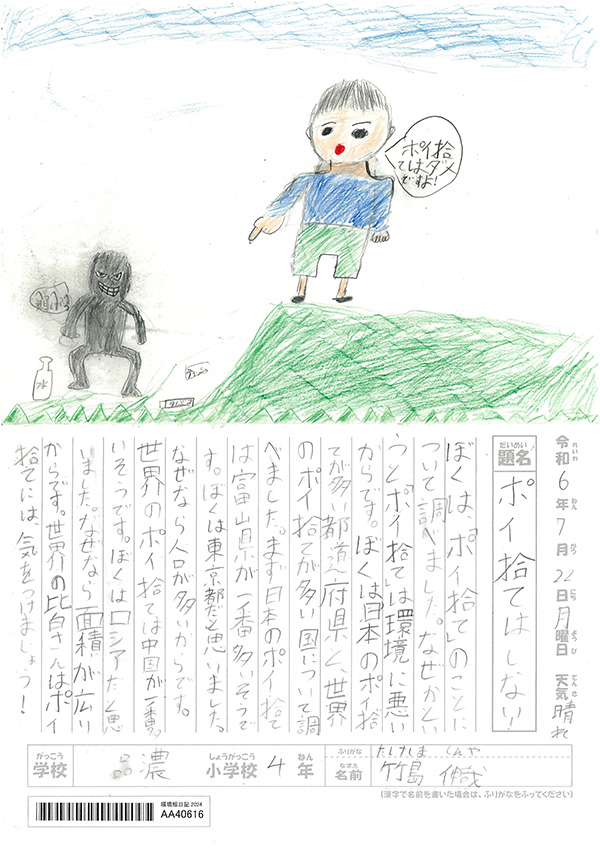 ポイ捨
てはダメ
ですよ!
水
たばこ
令和6年7月22日月曜日 天気 晴れ
れいわ ねん がつ にち ようび てんき
だいめい
題名 ポイ捨てはしない!
ぼくは、「ポイ捨て」のことに
ついて調べました。なぜかとい
うと「ポイ捨て」は環境に悪い
からです。ぼくは「日本のポイ捨
てが多い都道府県と、世界
のポイ捨てが多い国について調
べました。まず日本のポイ捨て
は富山県が一番多いそうで
す。ぼくは東京都だと思いました。
なぜなら人口が多いからです。
世界のポイ捨ては中国が一番多
いそうです。ぼくはロシアだと思
いました。なぜなら面積が広い
からです。世界の皆さんはポイ
捨てには、気をつけましょう!
がっこう しょうがっこう ねん
学校 品濃 小学校 4年
ふりがな たけしま しんや
なまえ
名前 竹島
(漢字で名前を書いた場合は、ふりがなをふってください)
環境絵日記 2024
AA40616